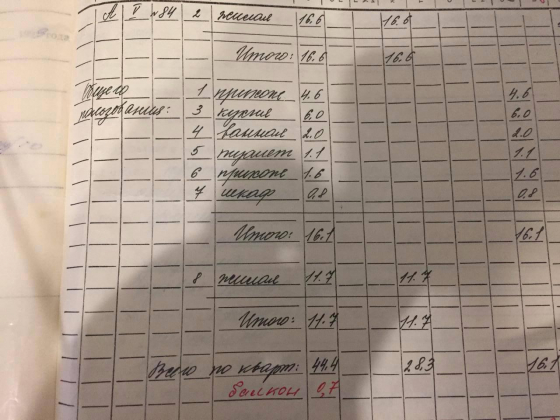 А V №84 2 жилая 16.6 16.6
Итого: 16.6 16.6
Общего 1 прихож 4.6 4.6
пользования: 3 кухня 6.0 6.0
4 ванная 2.0 2.0
5 туалет 1.1 1.1
6 прихож 1.6 1.6
7 шкаф 0,8 0,8
Итого: 16.1 16.1
8 жилая 11.7 11.7
Итого: 11.7 11.7
Всего по кварт: 44.4 28.3 16.1
балкон 0,7